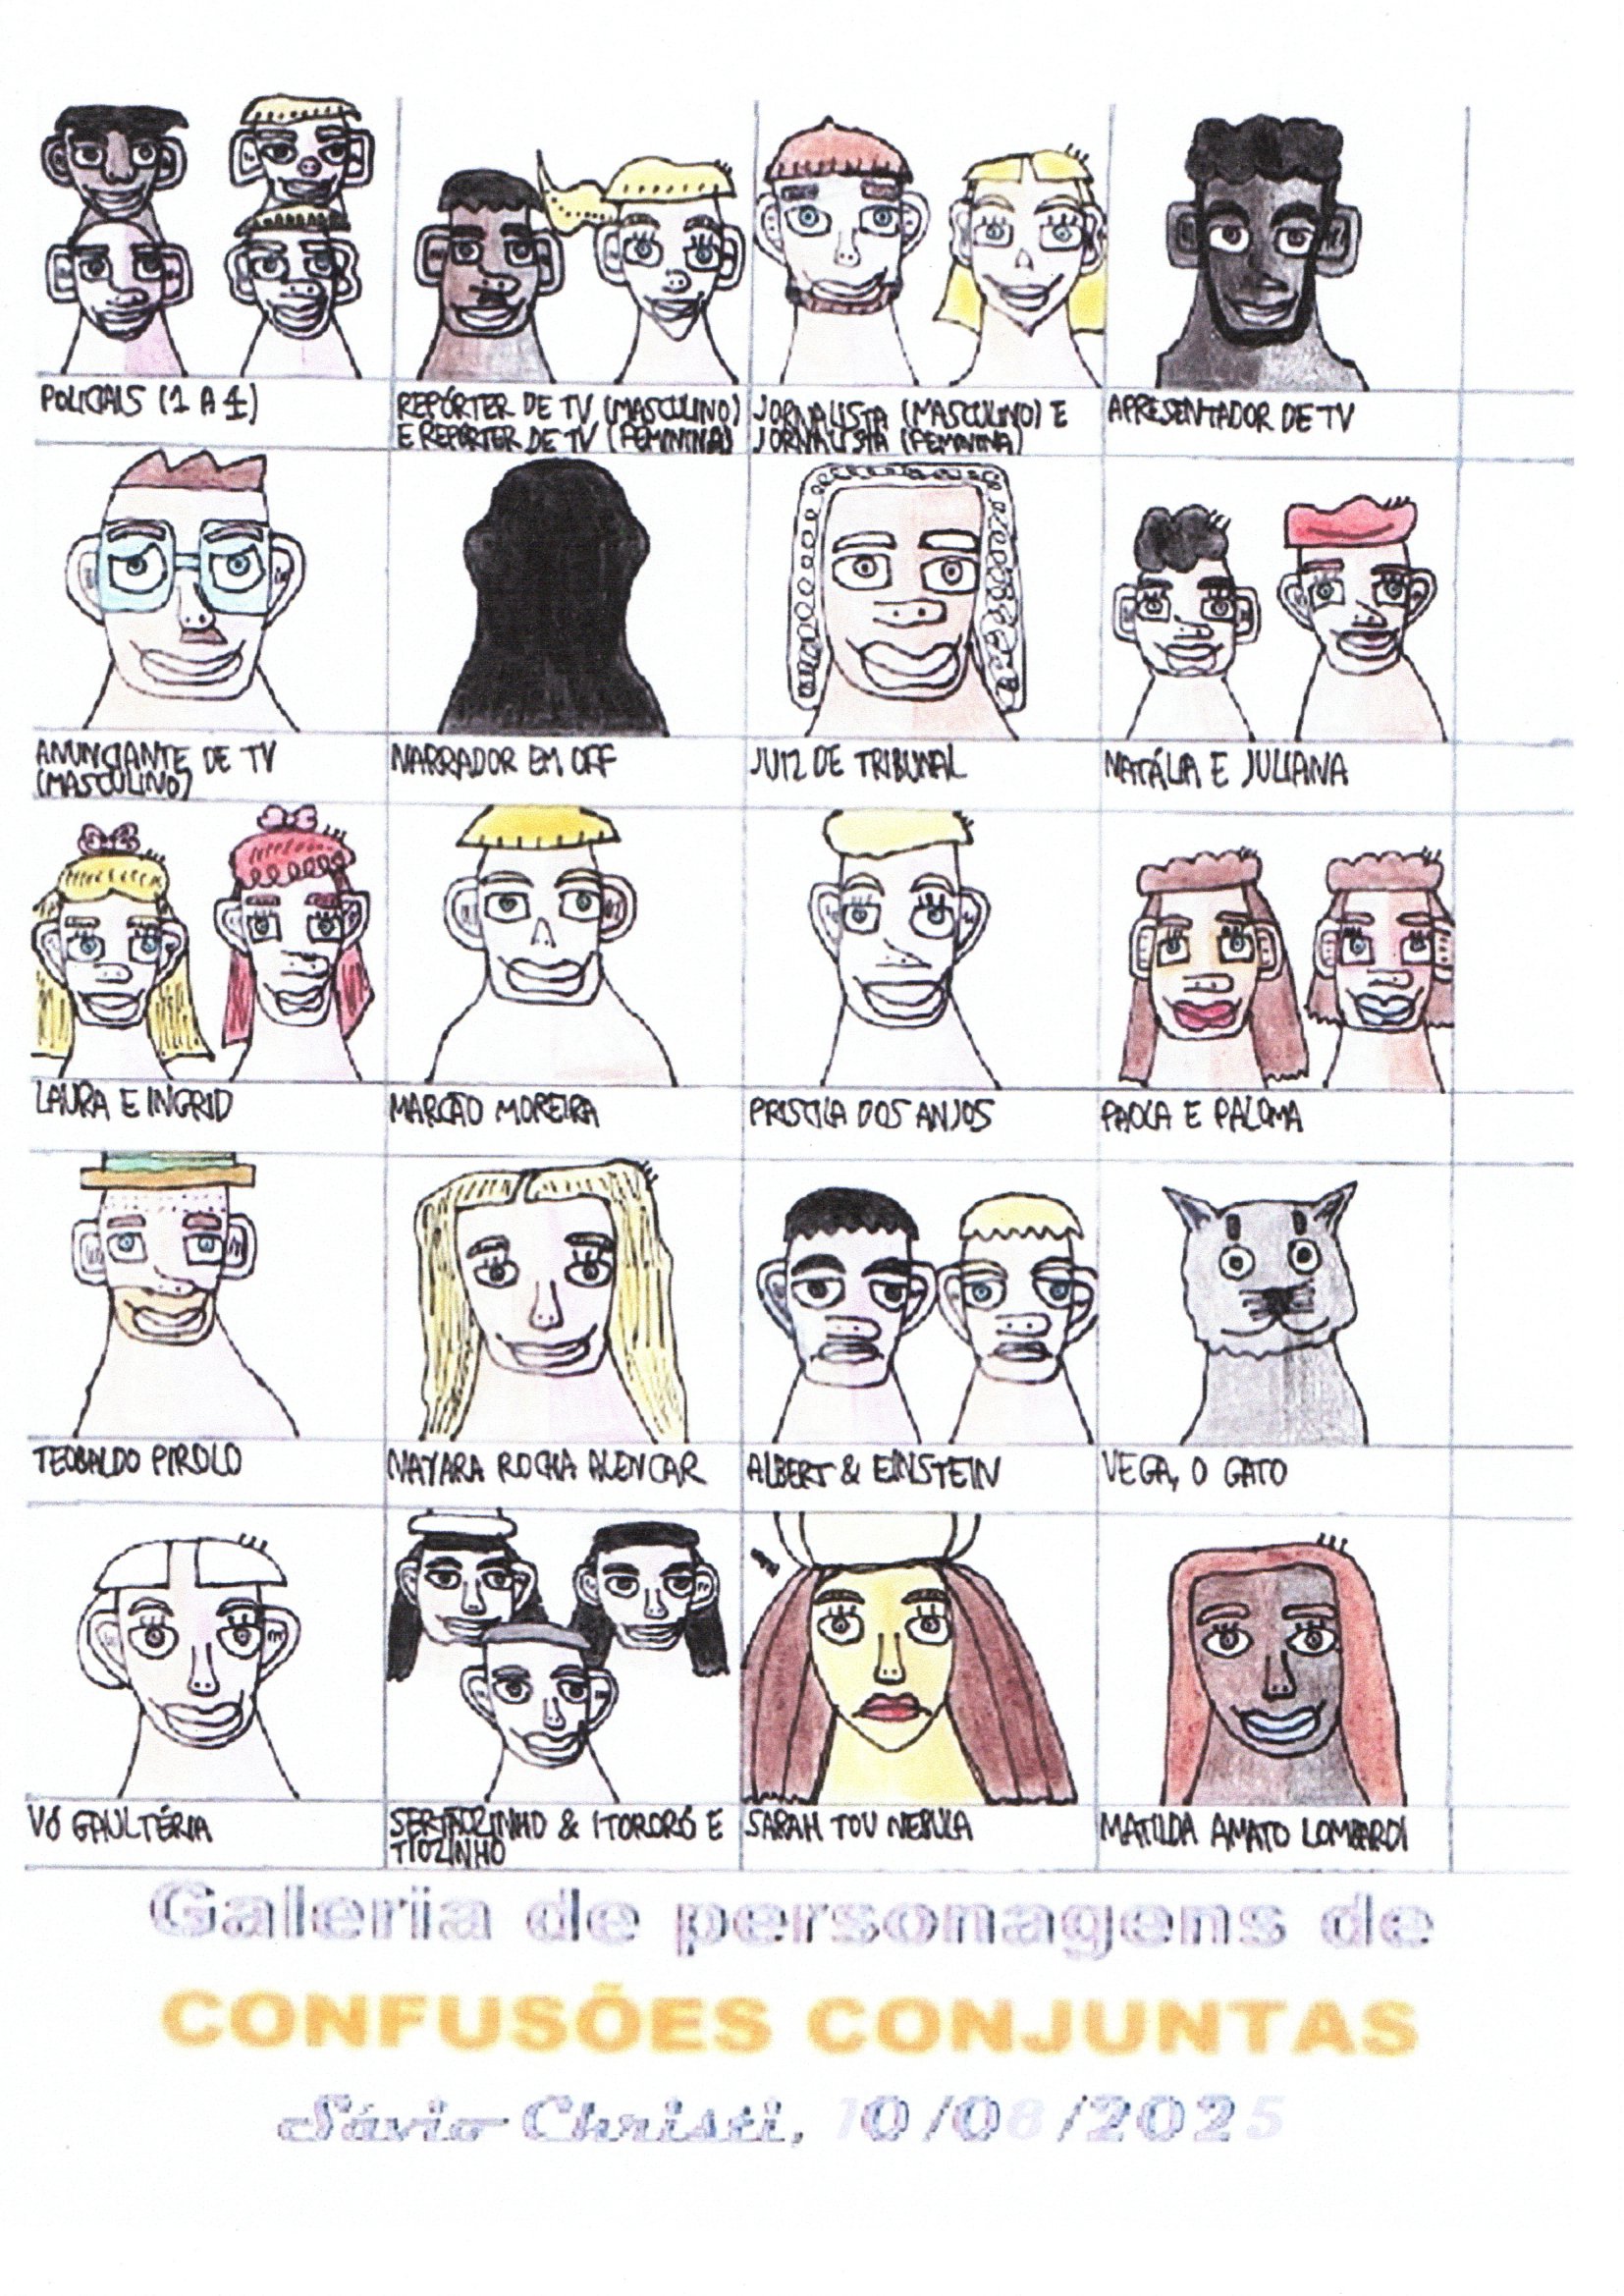 POLICIAIS (1 A 4)
REPÓRTER DE TV (MASCULINO)
E REPÓRTER DE TV (FEMININA)
JORNALISTA (MASCULINO) E
JORNALISTA (FEMININA)
APRESENTADOR DE TV
ANUNCIANTE DE TV
(MASCULINO)
NARRADOR EM OFF
JUIZ DE TRIBUNAL
NATÁLIA E JULIANA
LAURA E INGRID
MARCÃO MOREIRA
PRISCILA DOS ANJOS
PAOLA E PALOMA
TEOBALDO PIROLO
NAYARA ROCHA ALENCAR
ALBERT & EINSTEIN
VEGA, O GATO
VÓ GAULTÉRIA
SERTÃOZINHO & ITORORÓ E
TIOZINHO
SARAH TOV NEBULA
MATILDA AMATO LOMBARDI
Galeria de personagens de
CONFUSÕES CONJUNTAS
Sávio Christi, 10/08/2025